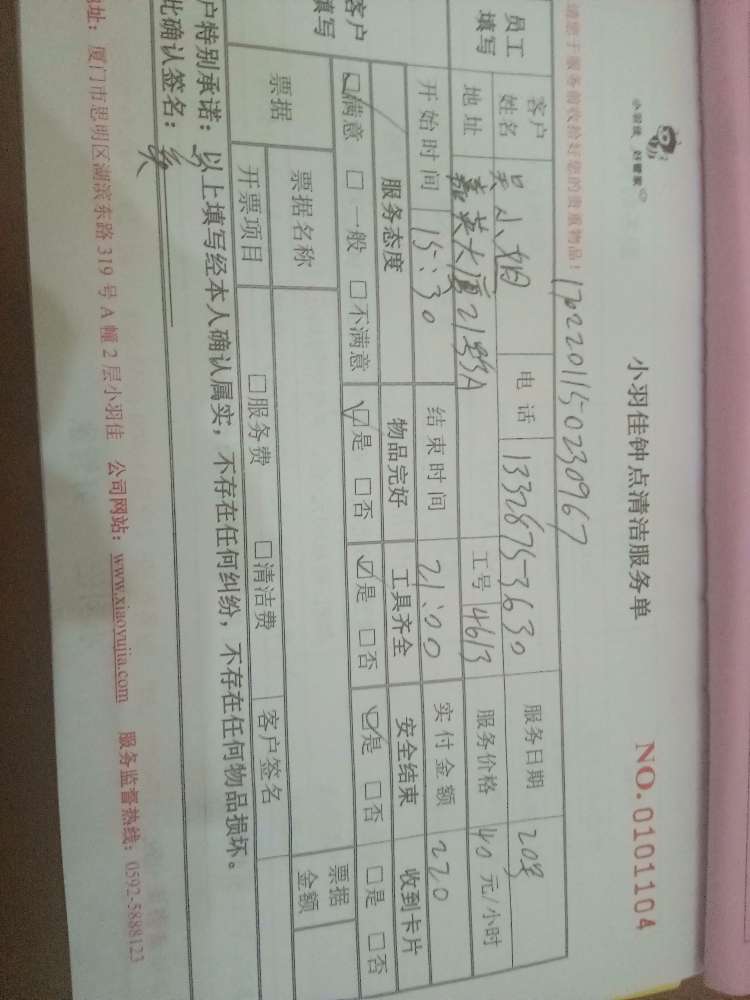 小羽佳 好管家
小羽佳钟点清洁服务单
NO.0101104
请您于服务前收拾好您的贵重物品！
170220115-0230967
员工填写
客户姓名 吴小姐 电话 13328753630 服务日期 20号
地址 嘉英大厦21#3A 工号 4613 服务价格 40 元/小时
开始时间 15:30 结束时间 21:00 实付金额 220
客户填写
服务态度 物品完好 工具齐全 安全结束 收到卡片
☑满意 □一般 □不满意 ☑是 □否 ☑是 □否 ☑是 □否 □是 □否
票据 票据名称 票据金额
开票项目 □服务费 □清洁费 客户签名
户特别承诺：以上填写经本人确认属实，不存在任何纠纷，不存在任何物品损坏。
此确认签名：吴
地址：厦门市思明区湖滨东路319号A幢2层小羽佳 公司网站：www.xiaoyujia.com 服务监督热线：0592-5888123